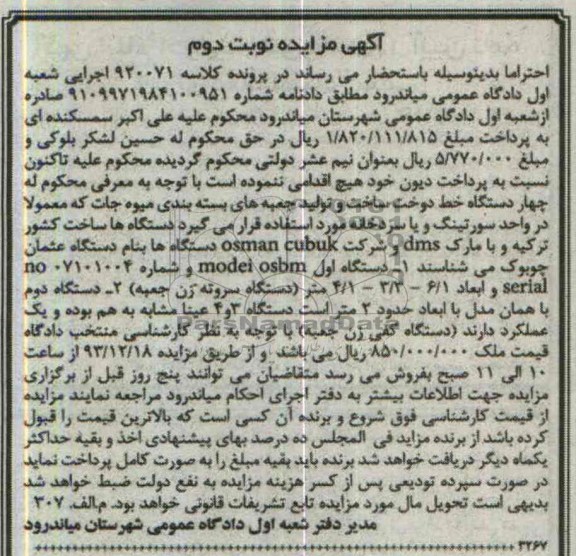 آگهی مزایده نوبت دوم
احتراما بدینوسیله باستحضار می رساند در پرونده کلاسه ۹۲۰۰۷۱ اجرایی شعبه
اول دادگاه عمومی میاندرود مطابق دادنامه شماره ۹۱۰۹۹۷۱۹۸۴۱۰۰۹۵۱ صادره
ازشعبه اول دادگاه عمومی شهرستان میاندرود محکوم علیه علی اکبر سمسکنده ای
به پرداخت مبلغ ۱/۸۲۰/۱۱۱/۸۱۵ ریال در حق محکوم له حسین لشکر بلوکی و
مبلغ ۵/۷۷۰/۰۰۰ ریال بعنوان نیم عشر دولتی محکوم گردیده محکوم علیه تاکنون
نسبت به پرداخت دیون خود هیچ اقدامی ننموده است با توجه به معرفی محکوم له
چهار دستگاه خط دوخت ساخت و تولید جعبه های بسته بندی میوه جات که معمولا
در واحد سورتینگ و یا سردخانه مورد استفاده قرار می گیرد دستگاه ها ساخت کشور
ترکیه و با مارک dms و شرکت osman cubuk دستگاه ها بنام دستگاه عثمان
چوبوک می شناسند ۱_ دستگاه اول modei osbm و شماره ۰۷۱۰۱۰۰۴ no
serial و ابعاد ۶/۱ - ۳/۳ - ۴/۱ متر (دستگاه سروته زن جعبه) ۲_ دستگاه دوم
با همان مدل با ابعاد حدود ۲ متر است دستگاه ۳و۴ عینا مشابه به هم بوده و یک
عملکرد دارند (دستگاه کفی زن جعبه) با توجه به نظر کارشناسی منتخب دادگاه
قیمت ملک ۸۵۰/۰۰۰/۰۰۰ ریال می باشد و از طریق مزایده ۹۳/۱۲/۱۸ از ساعت
۱۰ الی ۱۱ صبح بفروش می رسد متقاضیان می توانند پنج روز قبل از برگزاری
مزایده جهت اطلاعات بیشتر به دفتر اجرای احکام میاندرود مراجعه نمایند مزایده
از قیمت کارشناسی فوق شروع و برنده آن کسی است که بالاترین قیمت را قبول
کرده باشد از برنده مزاید فی المجلس ده درصد بهای پیشنهادی اخذ و بقیه حداکثر
یکماه دیگر دریافت خواهد شد برنده باید بقیه مبلغ را به صورت کامل پرداخت نماید
در صورت سپرده تودیعی پس از کسر هزینه مزایده به نفع دولت ضبط خواهد شد
بدیهی است تحویل مال مورد مزایده تابع تشریفات قانونی خواهد بود. م.الف. ۳۰۷
مدیر دفتر شعبه اول دادگاه عمومی شهرستان میاندرود
۳۲۶۷
ParsNamadData